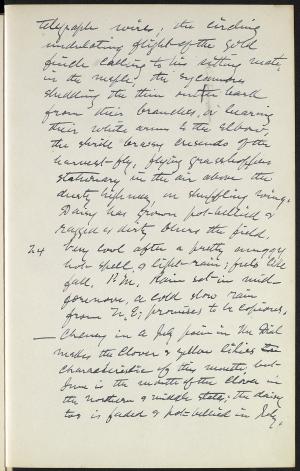 telegraph wires; the circling
undulating flight of the gold
finch calling to his sitting mate,
in the maple; the sycamores
shedding the thin outer bark
from their branches, & baring
their white arms to the elbow;
the shrill brassy crescendo of the
harvest-fly, flying grasshoppers
stationary in the air above the
dusty highway, on shuffling wings.
Daisy has grown pot-bellied &
ragged & dirty blurs the field.
24 Very cool after a pretty
hot-spell, & light-rain; feels like
fall. P.M. Rain set-in mid-
afternoon, a cold slow rain
from N.E; promises to be copious,
— Cheney in a July poem in the Dial
makes the clover & yellow lilies
characteristic of this month, but-
June is the month of the clover in
the northern & middle states; the daisy
too is faded & pot-bellied in July,